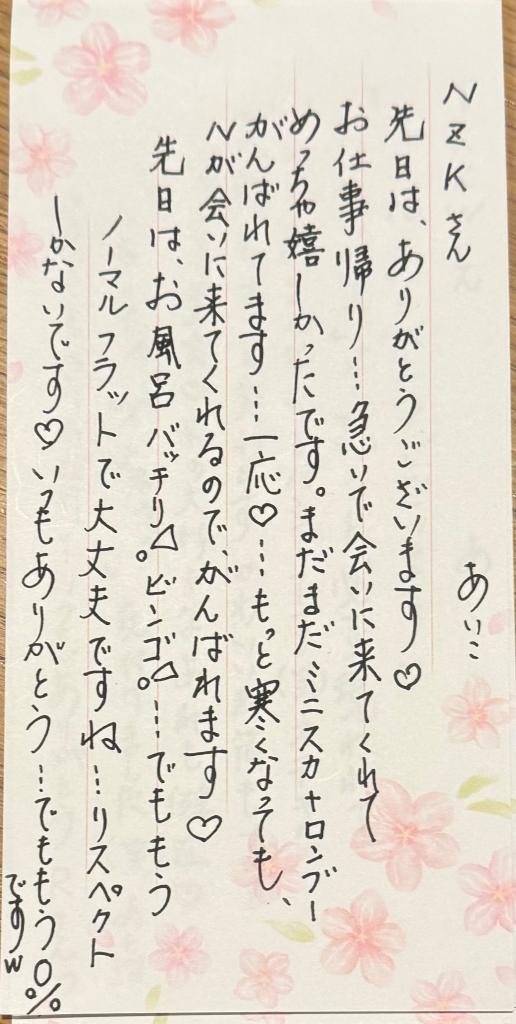 NZKさん
あいこ
先日は、ありがとうございます♡
お仕事帰り…急いで会いに来てくれて
めっちゃ嬉しかったです。まだまだミニスカ+ロンブー
がんばれてます…一応♡…もっと寒くなっても、
Nが会いに来てくれるので、がんばれます♡
先日は、お風呂バッチリ!ビンゴ!…でももう
ノーマルフラットで大丈夫ですね…リスペクト
しかないです♡いつもありがとう…でももう0%
ですw